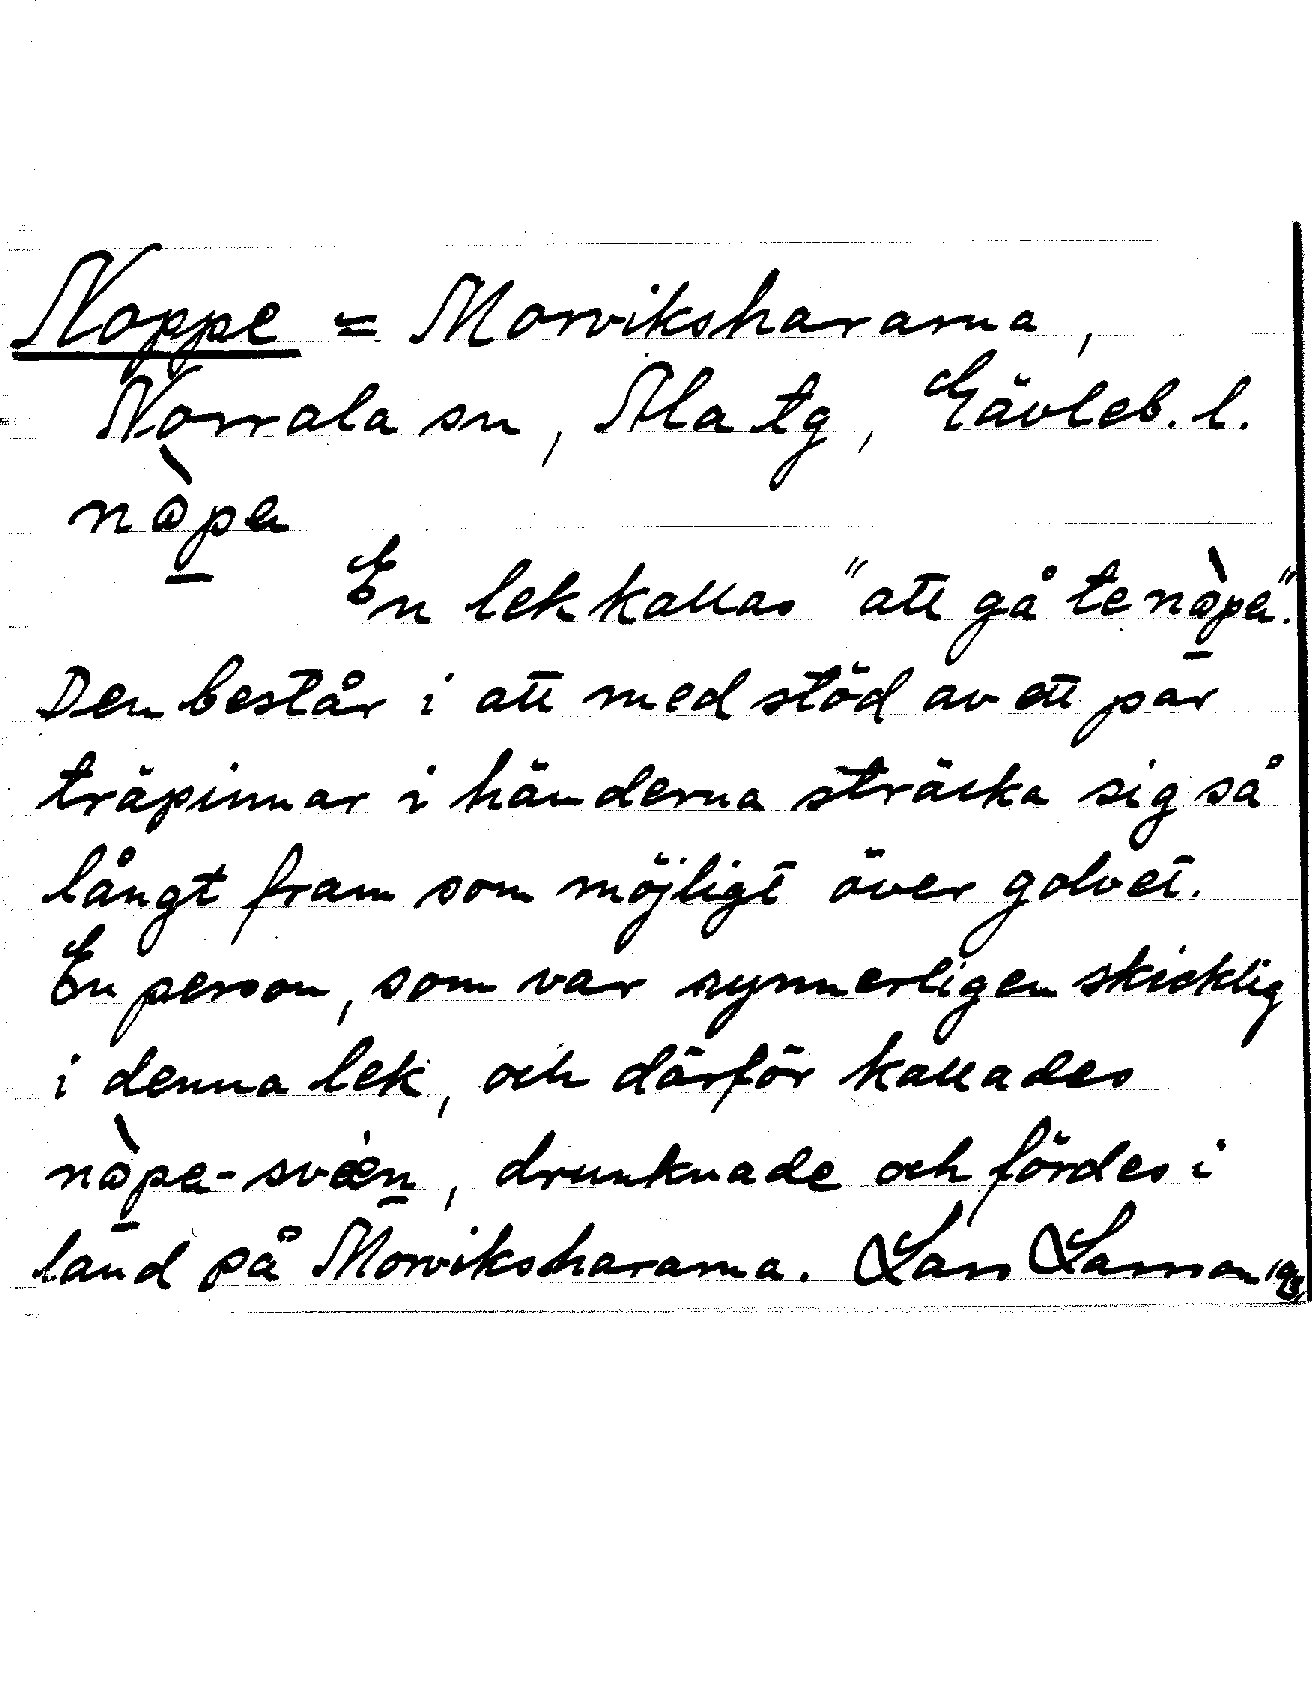 Noppe = Morvikshararna,
Norrala sn, Ala tg, Gävleb. l.
nòpa
En lek kallas "att gå te nòpa".
Den består i att med stöd av ett par
träpinnar i händerna sträcka sig så
långt fram som möjligt över golvet.
En person, som var synnerligen skicklig
i denna lek, och därför kallades
nòpa-svæ̀n, drunknade och fördes i
land på Morvikshararna. Lars Larsson